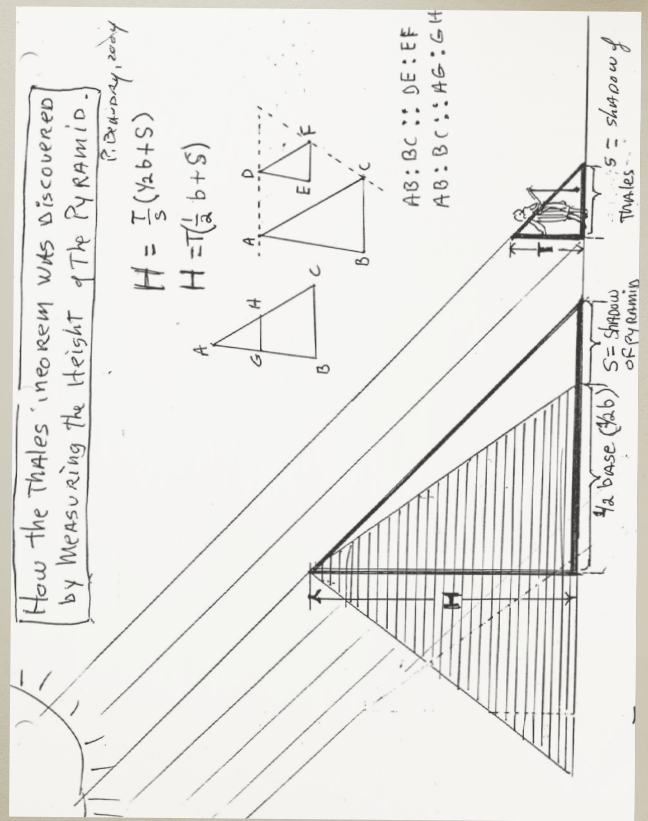 How the THALES THEOREM WAS DISCOVERED
by MEASURING the HEIGHT of The PYRAMID.
P. BEAUDRY, 2004
H = T/s (½b + S)
H = T(½ b + S)
A
G H
B C
A D
E F
B C
AB : BC :: DE : EF
AB : BC :: AG : GH
H
T
½ bASE (½b)
S = ShADOW
OF PYRAMID
s = shADOW of
THALES